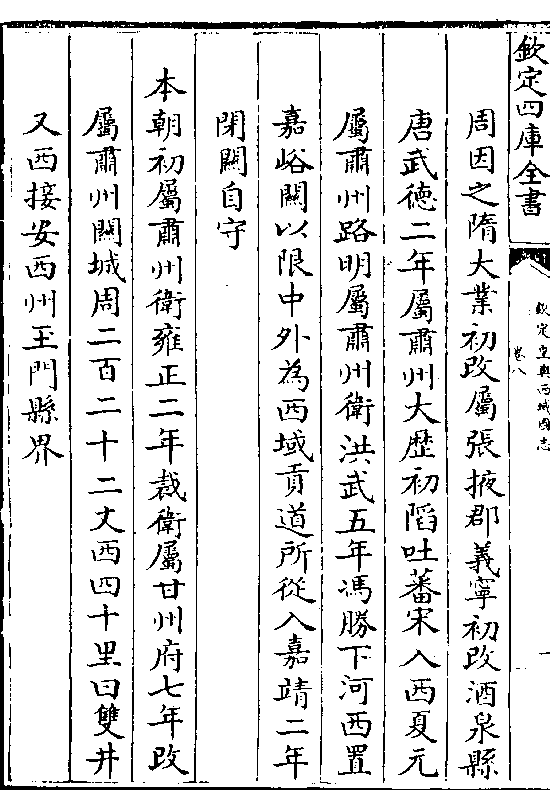 欽定四庫全書
欽定皇輿西域圖志
卷八
一
周因之隋大業初改屬張掖郡義寧初改酒泉縣
唐武德二年屬肅州大歷初䧟吐蕃宋入西夏元
屬肅州路明屬肅州衛洪武五年馮勝下河西置
嘉峪關以限中外為西域貢道所從入嘉靖二年
閉關自守
本朝初屬肅州衛雍正二年裁衛屬甘州府七年改
屬肅州關城周二百二十二丈西四十里曰雙井
又西接安西州玉門縣界